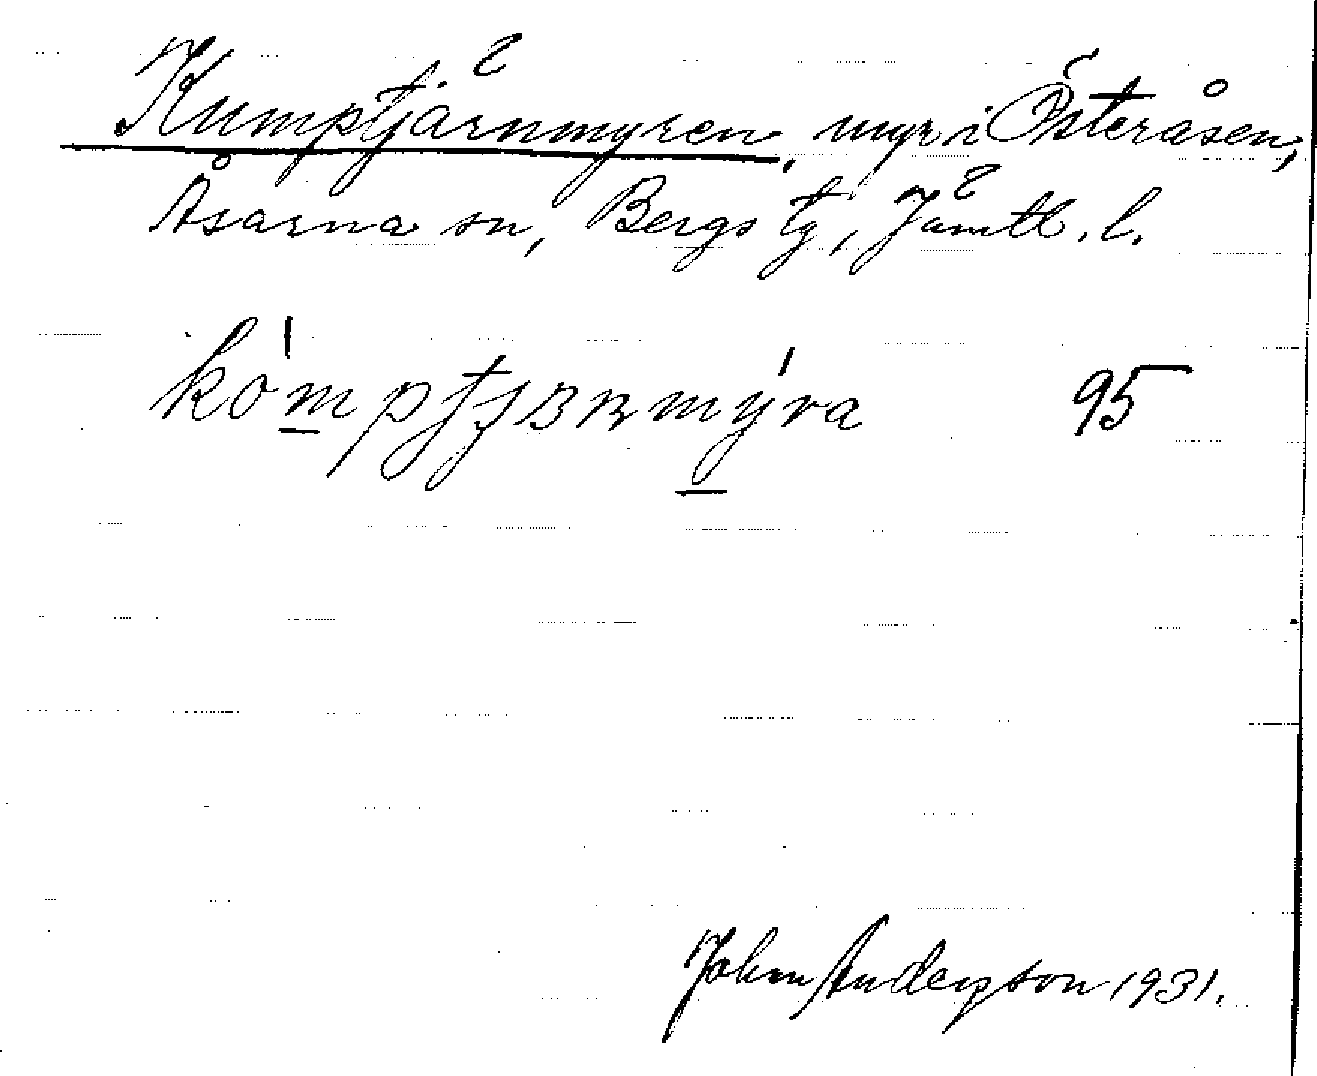 Kumptjärnmyren, myr i Österåsen,
Åsarna sn, Bergs tg, Jämtl. l.
95
John Anderzson 1931.